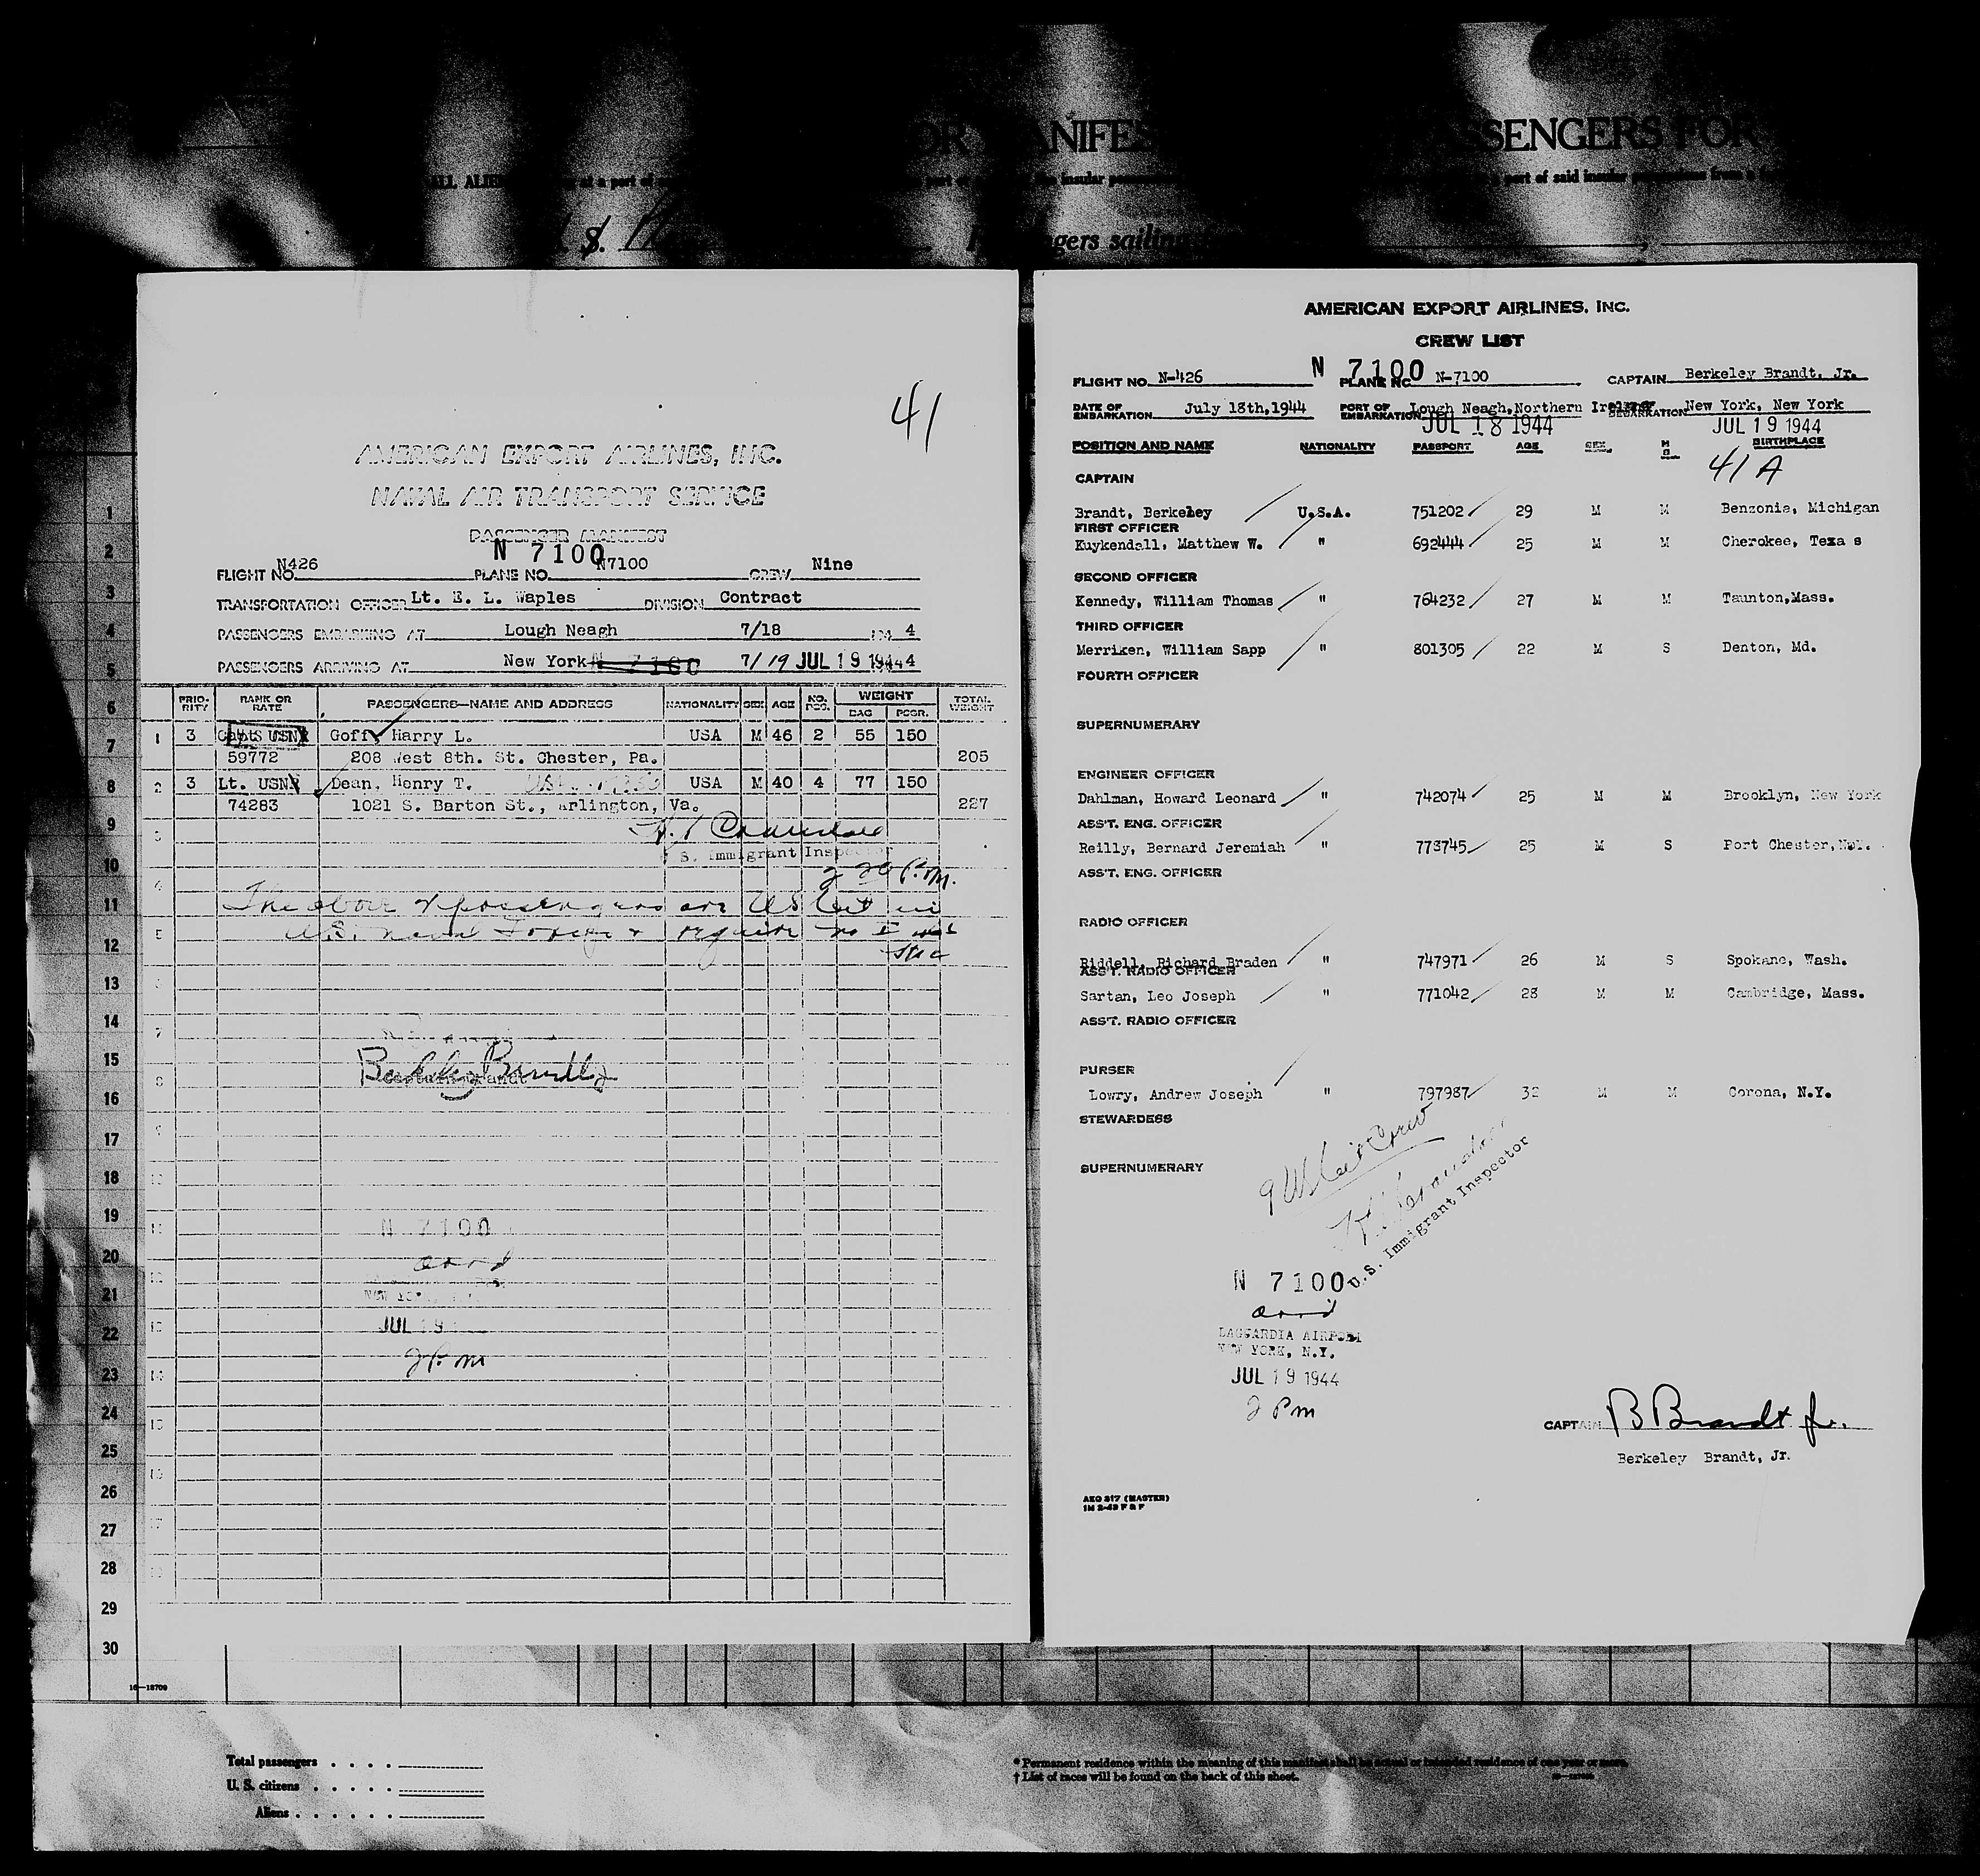 OR MANIFES
ASSENGERS FOR
ALL ALIE
at a part of
part of
the insular
a part of said insular
from a
S.
gers sailing
1
2
3
4
5
6
7
8
9
10
11
12
13
14
15
16
17
18
19
20
21
22
23
24
25
26
27
28
29
30
41
AMERICAN EXPORT AIRLINES, INC.
NAVAL AIR TRANSPORT SERVICE
PASSENGER MANIFEST
N 7100
FLIGHT NO. N426 PLANE NO. N7100 CREW Nine
TRANSPORTATION OFFICER Lt. E. L. Waples DIVISION Contract
PASSENGERS EMBARKING AT Lough Neagh 7/18 194 4
PASSENGERS ARRIVING AT New York N 7100 7/19 JUL 19 1944 4
PRIO-RITY RANK OR RATE PASSENGERS—NAME AND ADDRESS NATIONALITY SEX AGE NO. PCS. WEIGHT BAG PSGR. TOTAL WEIGHT
1 3 Capt. USN Goff, Harry L. USA M 46 2 55 150
59772 208 West 8th. St. Chester, Pa. 205
2 3 Lt. USN Dean, Henry T. USA M 40 4 77 150
74283 1021 S. Barton St., Arlington, Va. 227
S. Immigrant Inspector
2 20 P.M.
The above 2 passengers are US Cit in
U.S. naval
require no
Berkeley Brandt Jr
N 7100
arrd
NEW YORK, N.Y.
JUL 19
2 P.m
AMERICAN EXPORT AIRLINES, INC.
CREW LIST
FLIGHT NO. N-426 N 7100 PLANE NO. N-7100 CAPTAIN Berkeley Brandt, Jr.
DATE OF EMBARKATION July 18th,1944 PORT OF EMBARKATION Lough Neagh,Northern Ireland DEBARKATION New York, New York
JUL 18 1944 JUL 19 1944
POSITION AND NAME NATIONALITY PASSPORT AGE SEX M S BIRTHPLACE
41 A
CAPTAIN
Brandt, Berkeley U.S.A. 751202 29 M M Benzonia, Michigan
FIRST OFFICER
Kuykendall, Matthew W. " 692444 25 M M Cherokee, Texa s
SECOND OFFICER
Kennedy, William Thomas " 764232 27 M M Taunton,Mass.
THIRD OFFICER
Merriken, William Sapp " 801305 22 M S Denton, Md.
FOURTH OFFICER
SUPERNUMERARY
ENGINEER OFFICER
Dahlman, Howard Leonard " 742074 25 M M Brooklyn, New York
ASS'T. ENG. OFFICER
Reilly, Bernard Jeremiah " 773745 25 M S Port Chester,N.Y.
ASS'T. ENG. OFFICER
RADIO OFFICER
Riddell, Richard Braden " 747971 26 M S Spokane, Wash.
ASS'T. RADIO OFFICER
Sartan, Leo Joseph " 771042 28 M M Cambridge, Mass.
ASS'T. RADIO OFFICER
PURSER
Lowry, Andrew Joseph " 797987 32 M M Corona, N.Y.
STEWARDESS
SUPERNUMERARY
9 US Cit Crew
U.S. Immigrant Inspector
N 7100
arrd
LAGUARDIA AIRPORT
NEW YORK, N.Y.
JUL 19 1944
2 Pm
CAPTAIN B Brandt Jr.
Berkeley Brandt, Jr.
AEO 317 (MASTER)
1M 2-43 F & F
16—18709
Total passengers
U. S. citizens
Aliens
* Permanent residence within the meaning of this manifest shall be actual or intended residence of one year or more.
† List of races will be found on the back of this sheet.